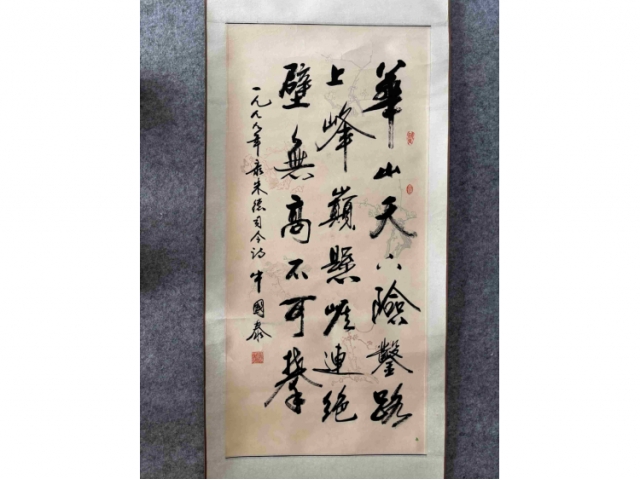 華山天下險鑿路
上峰巔懸崖連絕
壁無高不可攀
一九九九年录朱德司令詩 牛國泰